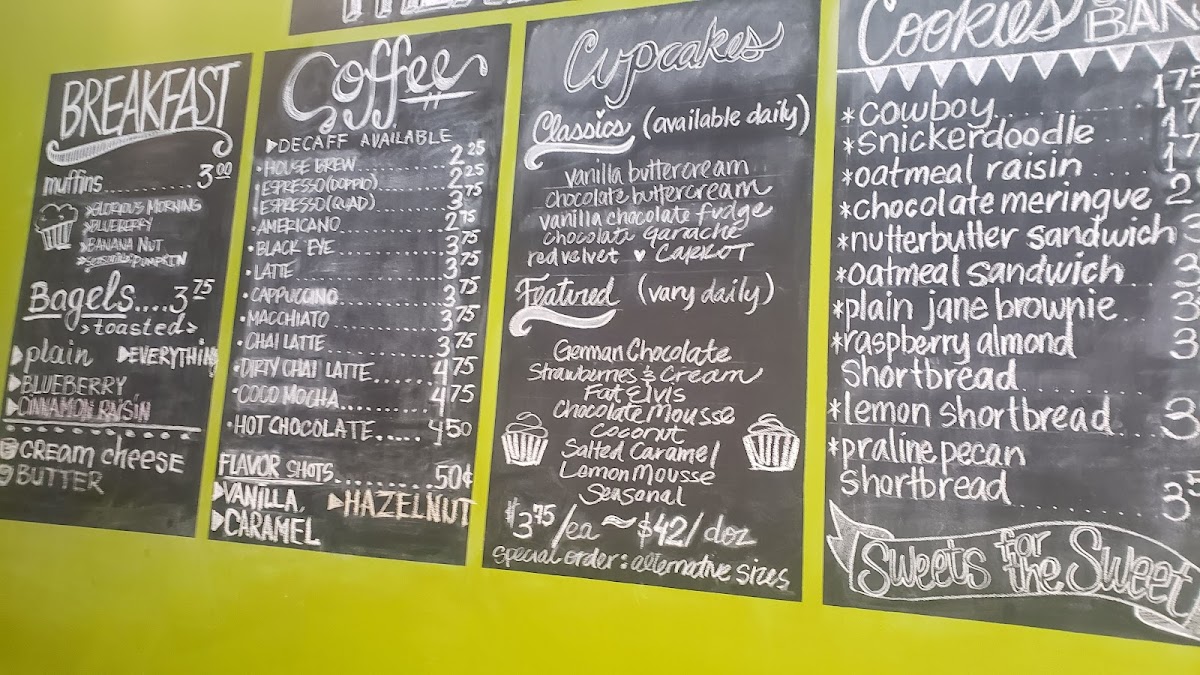 BREAKFAST
muffins 3.00
GLORIOUS MORNING
BLUEBERRY
BANANA NUT
PUMPKIN
Bagels....3.75
>toasted>
plain EVERYTHING
BLUEBERRY
CINNAMON RAISIN
CREAM cheese
BUTTER
Coffee
DECAFF AVAILABLE
• HOUSE BREW 2.25
• ESPRESSO (DOPPIO) 2.25
• ESPRESSO (QUAD) 3.75
• AMERICANO 2.75
• BLACK EYE 3.75
• LATTE 3.75
• CAPPUCCINO 3.75
• MACCHIATO 3.75
• CHAI LATTE 3.75
• DIRTY CHAI LATTE 4.75
• COCO MOCHA 4.75
• HOT CHOCOLATE 4.50
FLAVOR SHOTS 50¢
VANILLA, HAZELNUT
CARAMEL
Cupcakes
Classics (available daily)
vanilla buttercream
chocolate buttercream
vanilla chocolate fudge
chocolate Ganache
red velvet ♥ CARROT
Featured (vary daily)
German Chocolate
Strawberries & Cream
Fat Elvis
Chocolate Mousse
Coconut
Salted Caramel
Lemon Mousse
Seasonal
$3.75/ea ~ $42/doz
special order: alternative sizes
Cookies BAR
*cowboy 1.75
*snickerdoodle 1
*oatmeal raisin 1
*chocolate meringue 2
*nutterbutter sandwich 3
*oatmeal sandwich 3
*plain jane brownie 3
*raspberry almond 3
Shortbread
*lemon shortbread 3
*praline pecan
Shortbread 3
Sweets for the Sweet